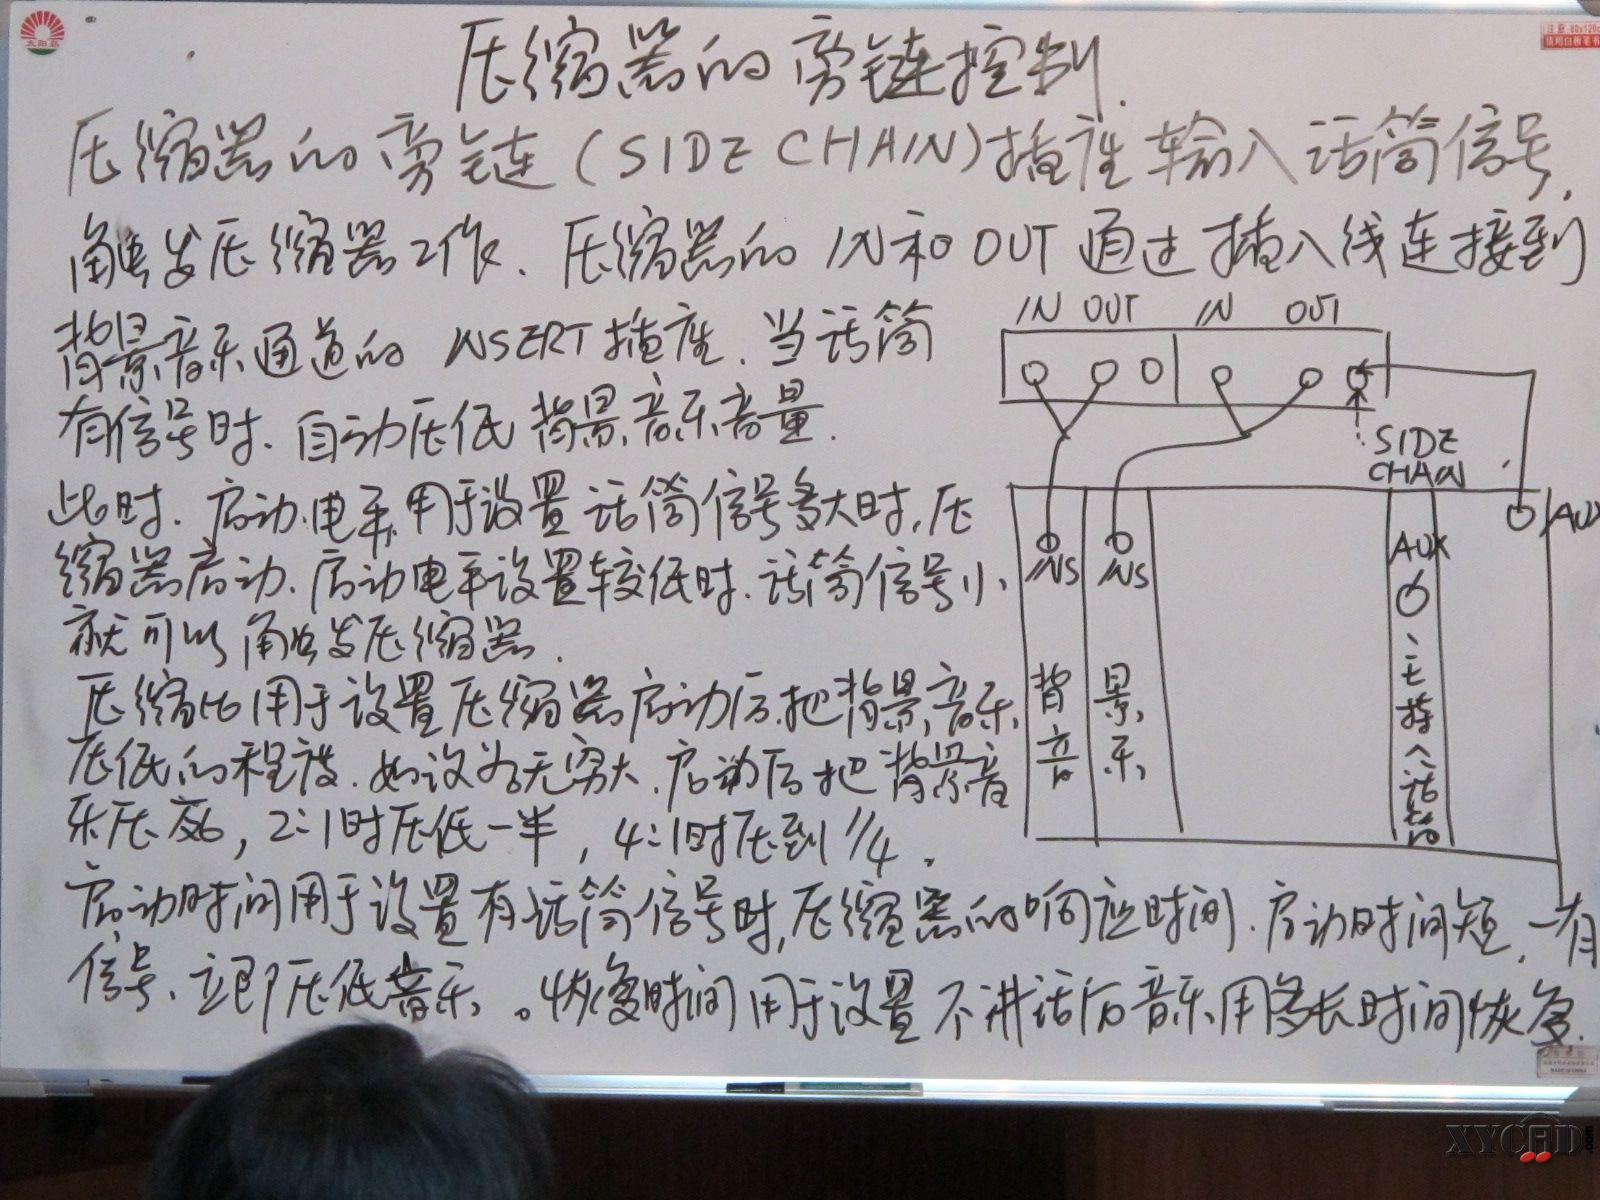 压缩器的旁链控制.
压缩器的旁链(SIDE CHAIN)插座输入话筒信号,
触发压缩器工作.压缩器的IN和OUT通过插入线连接到
背景音乐通道的INSERT插座.当话筒
有信号时.自动压低背景音乐音量.
此时.启动电平用于设置话筒信号多大时,压
缩器启动.启动电平设置较低时.话筒信号小、
就可以触发压缩器.
压缩比用于设置压缩器启动后.把背景音乐
压低的程度.如设为无穷大.启动后把背景音
乐压死,2:1时压低一半,4:1时压到1/4.
启动时间用于设置有话筒信号时,压缩器的响应时间.启动时间短,一有
信号、立即压低音乐。恢复时间用于设置不讲话后音乐用多长时间恢复.
IN OUT IN OUT
SIDE
CHAIN
AUX
INS INS
AUX
背景
音乐
主持人话筒
太阳岛
XYCAD.com